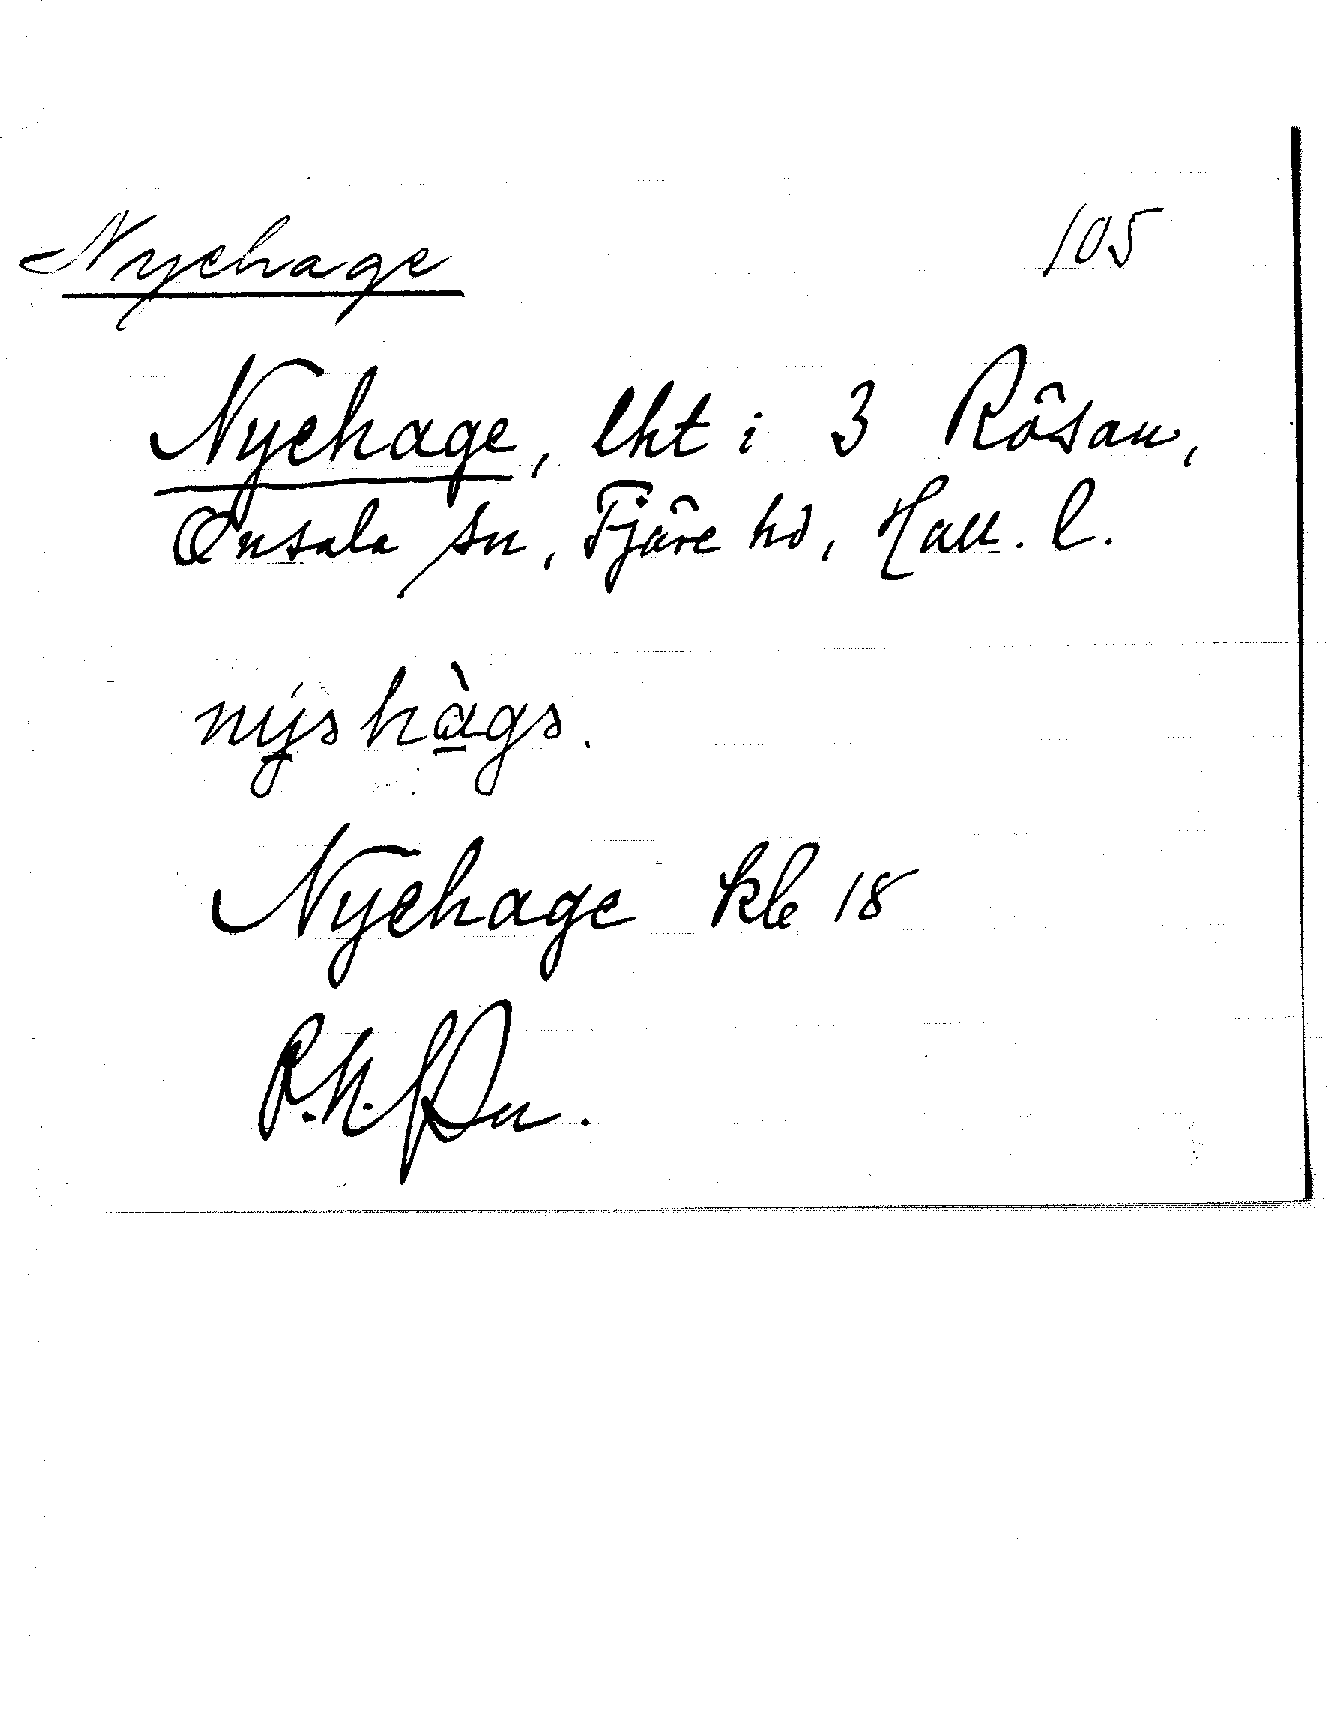 Nyehage 105
Nyehage, lht i 3 Rösan,
Onsala sn, Fjäre hd, Hall. l.
nyə hàgə.
Nyehage kb 18